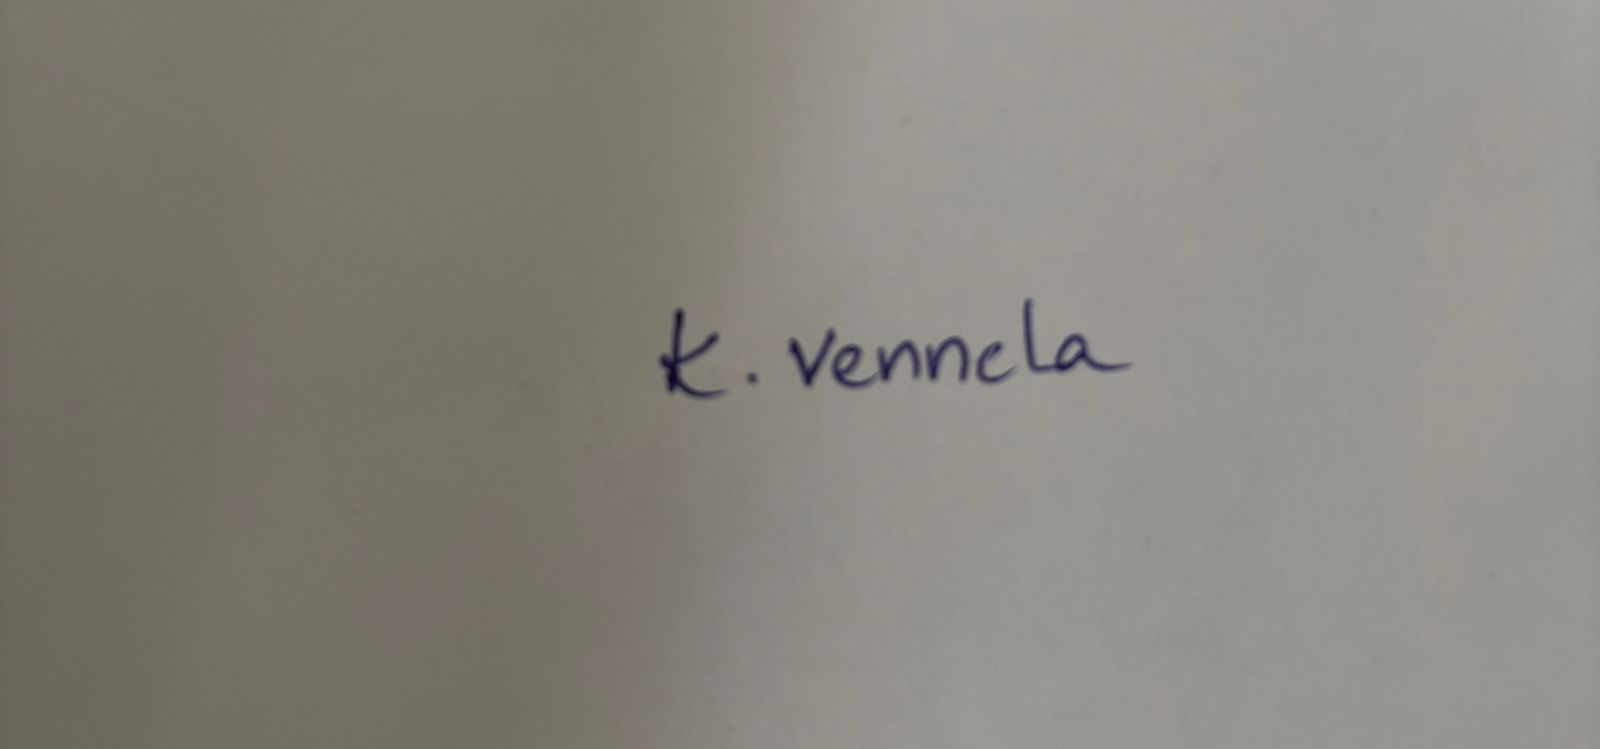 K. Vennela